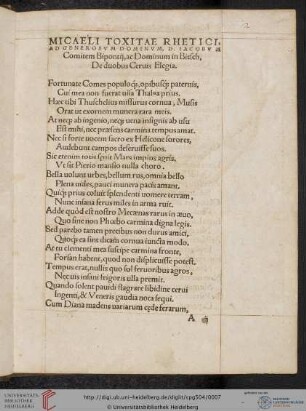 MICAELI TOXITAE RHETICI,
AD GENEROSVM DOMINVM, D. IACOBVM
Comitem Bipontij, ac Dominum in Bitsch,
De duobus Ceruis Elegia.
Fortunate Comes populoq;, opibusq; paternis,
Cui mea non fuerat uisa Thalia prius.
Haec tibi Thuschelius missurus cornua, Musis
Orat ut exornem munera rara meis.
At neq; ab ingenio, neq; uena insignis ab usu
Est mihi, nec praesens carmina tempus amat.
Nec si forte uocem sacro ex Helicone sorores,
Audebunt campos deseruisse suos.
Sic etenim totis spirat Mars impius agris,
Vt sit Pierio mansio nulla choro.
Bella uolunt urbes, bellum rus, omnia bello
Plena uides, pauci munera pacis amant.
Quiq; prius coluit splendenti uomere terram,
Nunc insana ferus miles in arma ruit.
Adde quòd est nostro Mecœnas rarus in æuo,
Quo sine non Phœbo carmina digna legis.
Sed parebo tamen precibus non durus amici,
Quoq; ea sint dicam cornua iuncta modo.
At tu clementi mea suscipe carmina fronte,
Forsan habent, quod non displicuisse potest.
Tempus erat, nullis quo sol feruoribus agros,
Nec uis insani frigoris ulla premit.
Quando solent pauidi flagrare libidine cerui
Ingenti, & Veneris gaudia nota sequi.
Cum Diana madens uariarum cæde ferarum,
A
UNIVERSITÄTS-
BIBLIOTHEK
HEIDELBERG
http://digi.ub.uni-heidelberg.de/diglit/cpg504/0007
© Universitätsbibliothek Heidelberg